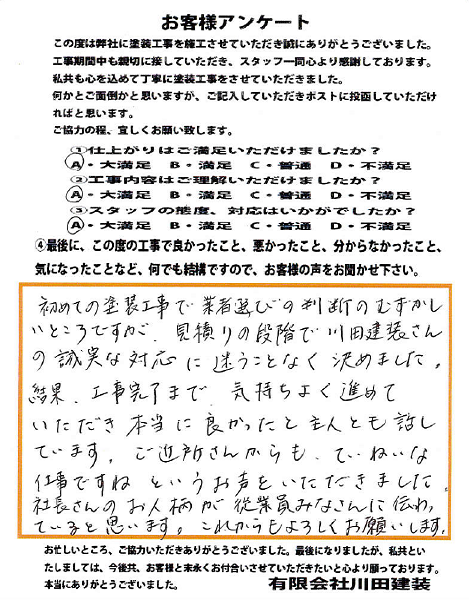 お客様アンケート
この度は弊社に塗装工事を施工させていただき誠にありがとうございました。
工事期間中も親切に接していただき、スタッフ一同心より感謝しております。
私共も心を込めて丁寧に塗装工事をさせていただきました。
何かとご面倒かと思いますが、ご記入していただきポストに投函していただけ
ればと思います。
ご協力の程、宜しくお願い致します。
①仕上がりはご満足いただけましたか？
A・大満足 B・満足 C・普通 D・不満足
②工事内容はご理解いただけましたか？
A・大満足 B・満足 C・普通 D・不満足
③スタッフの態度、対応はいかがでしたか？
A・大満足 B・満足 C・普通 D・不満足
④最後に、この度の工事で良かったこと、悪かったこと、分からなかったこと、
気になったことなど、何でも結構ですので、お客様の声をお聞かせ下さい。
初めての塗装工事で業者選びの判断のむずかし
いところですが、見積りの段階で川田建装さん
の誠実な対応に迷うことなく決めました。
結果、工事完了まで、気持ちよく進めて
いただき本当に良かったと主人とも話し
ています。ご近所さんからも、ていねいな
仕事ですねというお声をいただきました
社長さんのお人柄が従業員みなさんに伝わっ
ていると思います。これからもよろしくお願いします。
お忙しいところ、ご協力いただきありがとうございました。最後になりましたが、私共とい
たしましては、今後共、お客様と末永くお付合いさせていただきたいと心より願っております。
本当にありがとうございました。 有限会社川田建装